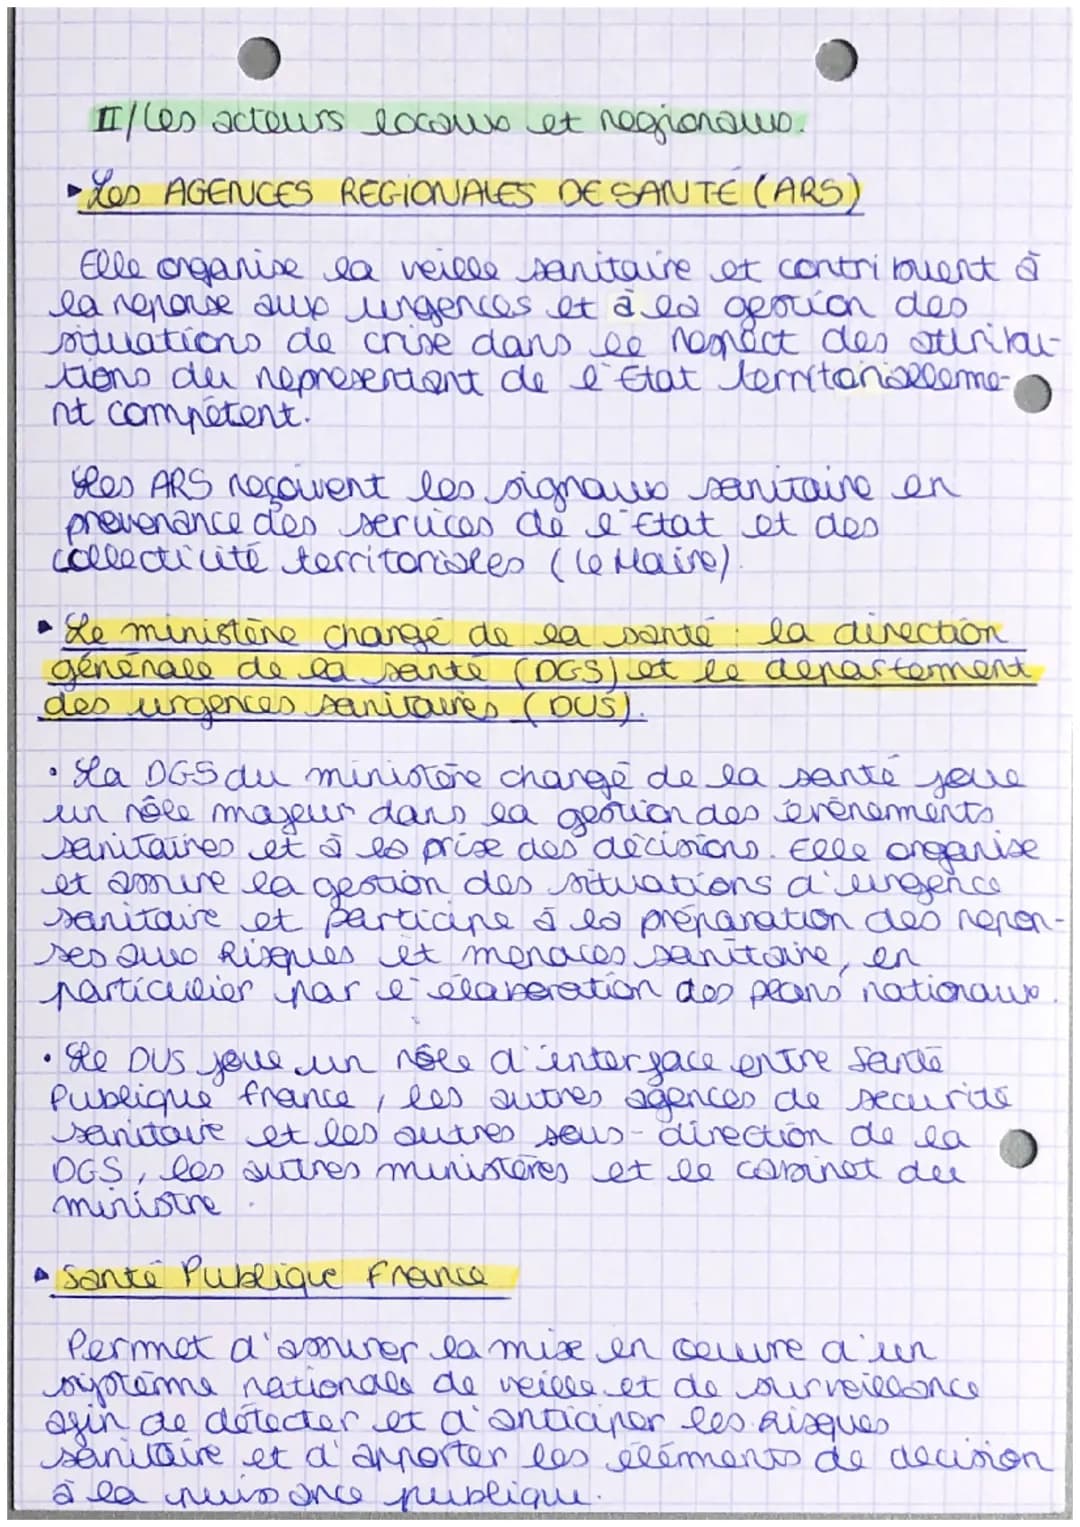 II/Les acteurs locaux et regionaux.
Les AGENCES REGIONALES DE SANTÉ (ARS)
Elle organise la veille sanitaire et contribuent à
la reponse aux urgences et à la gestion des
situations de crise dans le respect des attribu-
tions du representant de l'État territorialleme-
nt compétent.
Les ARS reçoivent les signaux sanitaire en
provenance des services de l'État et des
collectivité territoriales (le Maire).
Le ministère chargé de la santé : la direction
générale de la santé (DGS) et le departement
des urgences sanitaires (DUS).
• La DGS du ministère chargé de la santé joue
un rôle majeur dans la gestion des évènements
sanitaires et à la prise des décisions. Elle organise
et assure la gestion des situations d'urgence
sanitaire et participe à la préparation des repon-
ses aux Risques et menaces sanitaire, en
particulier par l'élaboration des plans nationaux.
• Le DUS joue un rôle d'interface entre Santé
Publique france, les autres agences de securité
sanitaire et les autres sous-direction de la
DGS, les autres ministères et le cabinet du
ministre.
Santé Publique France
Permet d'assurer la mise en oeuvre d'un
système nationale de veille et de surveillance
afin de détecter et d'anticiper les Risques
sanitaire et d'apporter les éléments de decision
à la puissance publique.